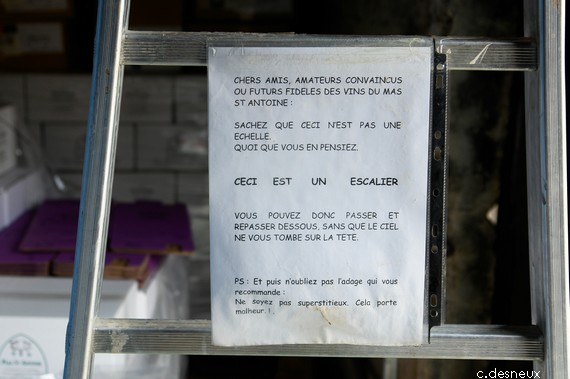 CHERS AMIS, AMATEURS CONVAINCUS
OU FUTURS FIDELES DES VINS DU MAS
ST ANTOINE :
SACHEZ QUE CECI N'EST PAS UNE
ECHELLE.
QUOI QUE VOUS EN PENSIEZ.
CECI EST UN ESCALIER
VOUS POUVEZ DONC PASSER ET
REPASSER DESSOUS, SANS QUE LE CIEL
NE VOUS TOMBE SUR LA TETE.
PS : Et puis n'oubliez pas l'adage qui vous
recommande :
Ne soyez pas superstitieux. Cela porte
malheur !
c.desneux